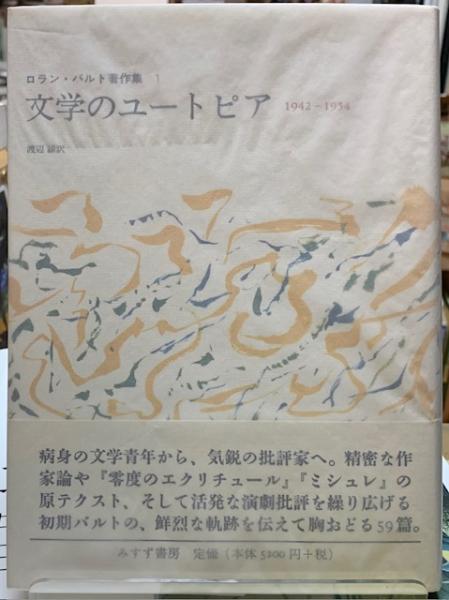 ロラン・バルト著作集 1
文学のユートピア 1942-1954
渡辺 諒訳
病身の文学青年から、気鋭の批評家へ。精密な作
家論や『零度のエクリチュール』『ミシュレ』の
原テクスト、そして活発な演劇批評を繰り広げる
初期バルトの、鮮烈な軌跡を伝えて胸おどる59篇。
みすず書房 定価（本体5200円＋税）